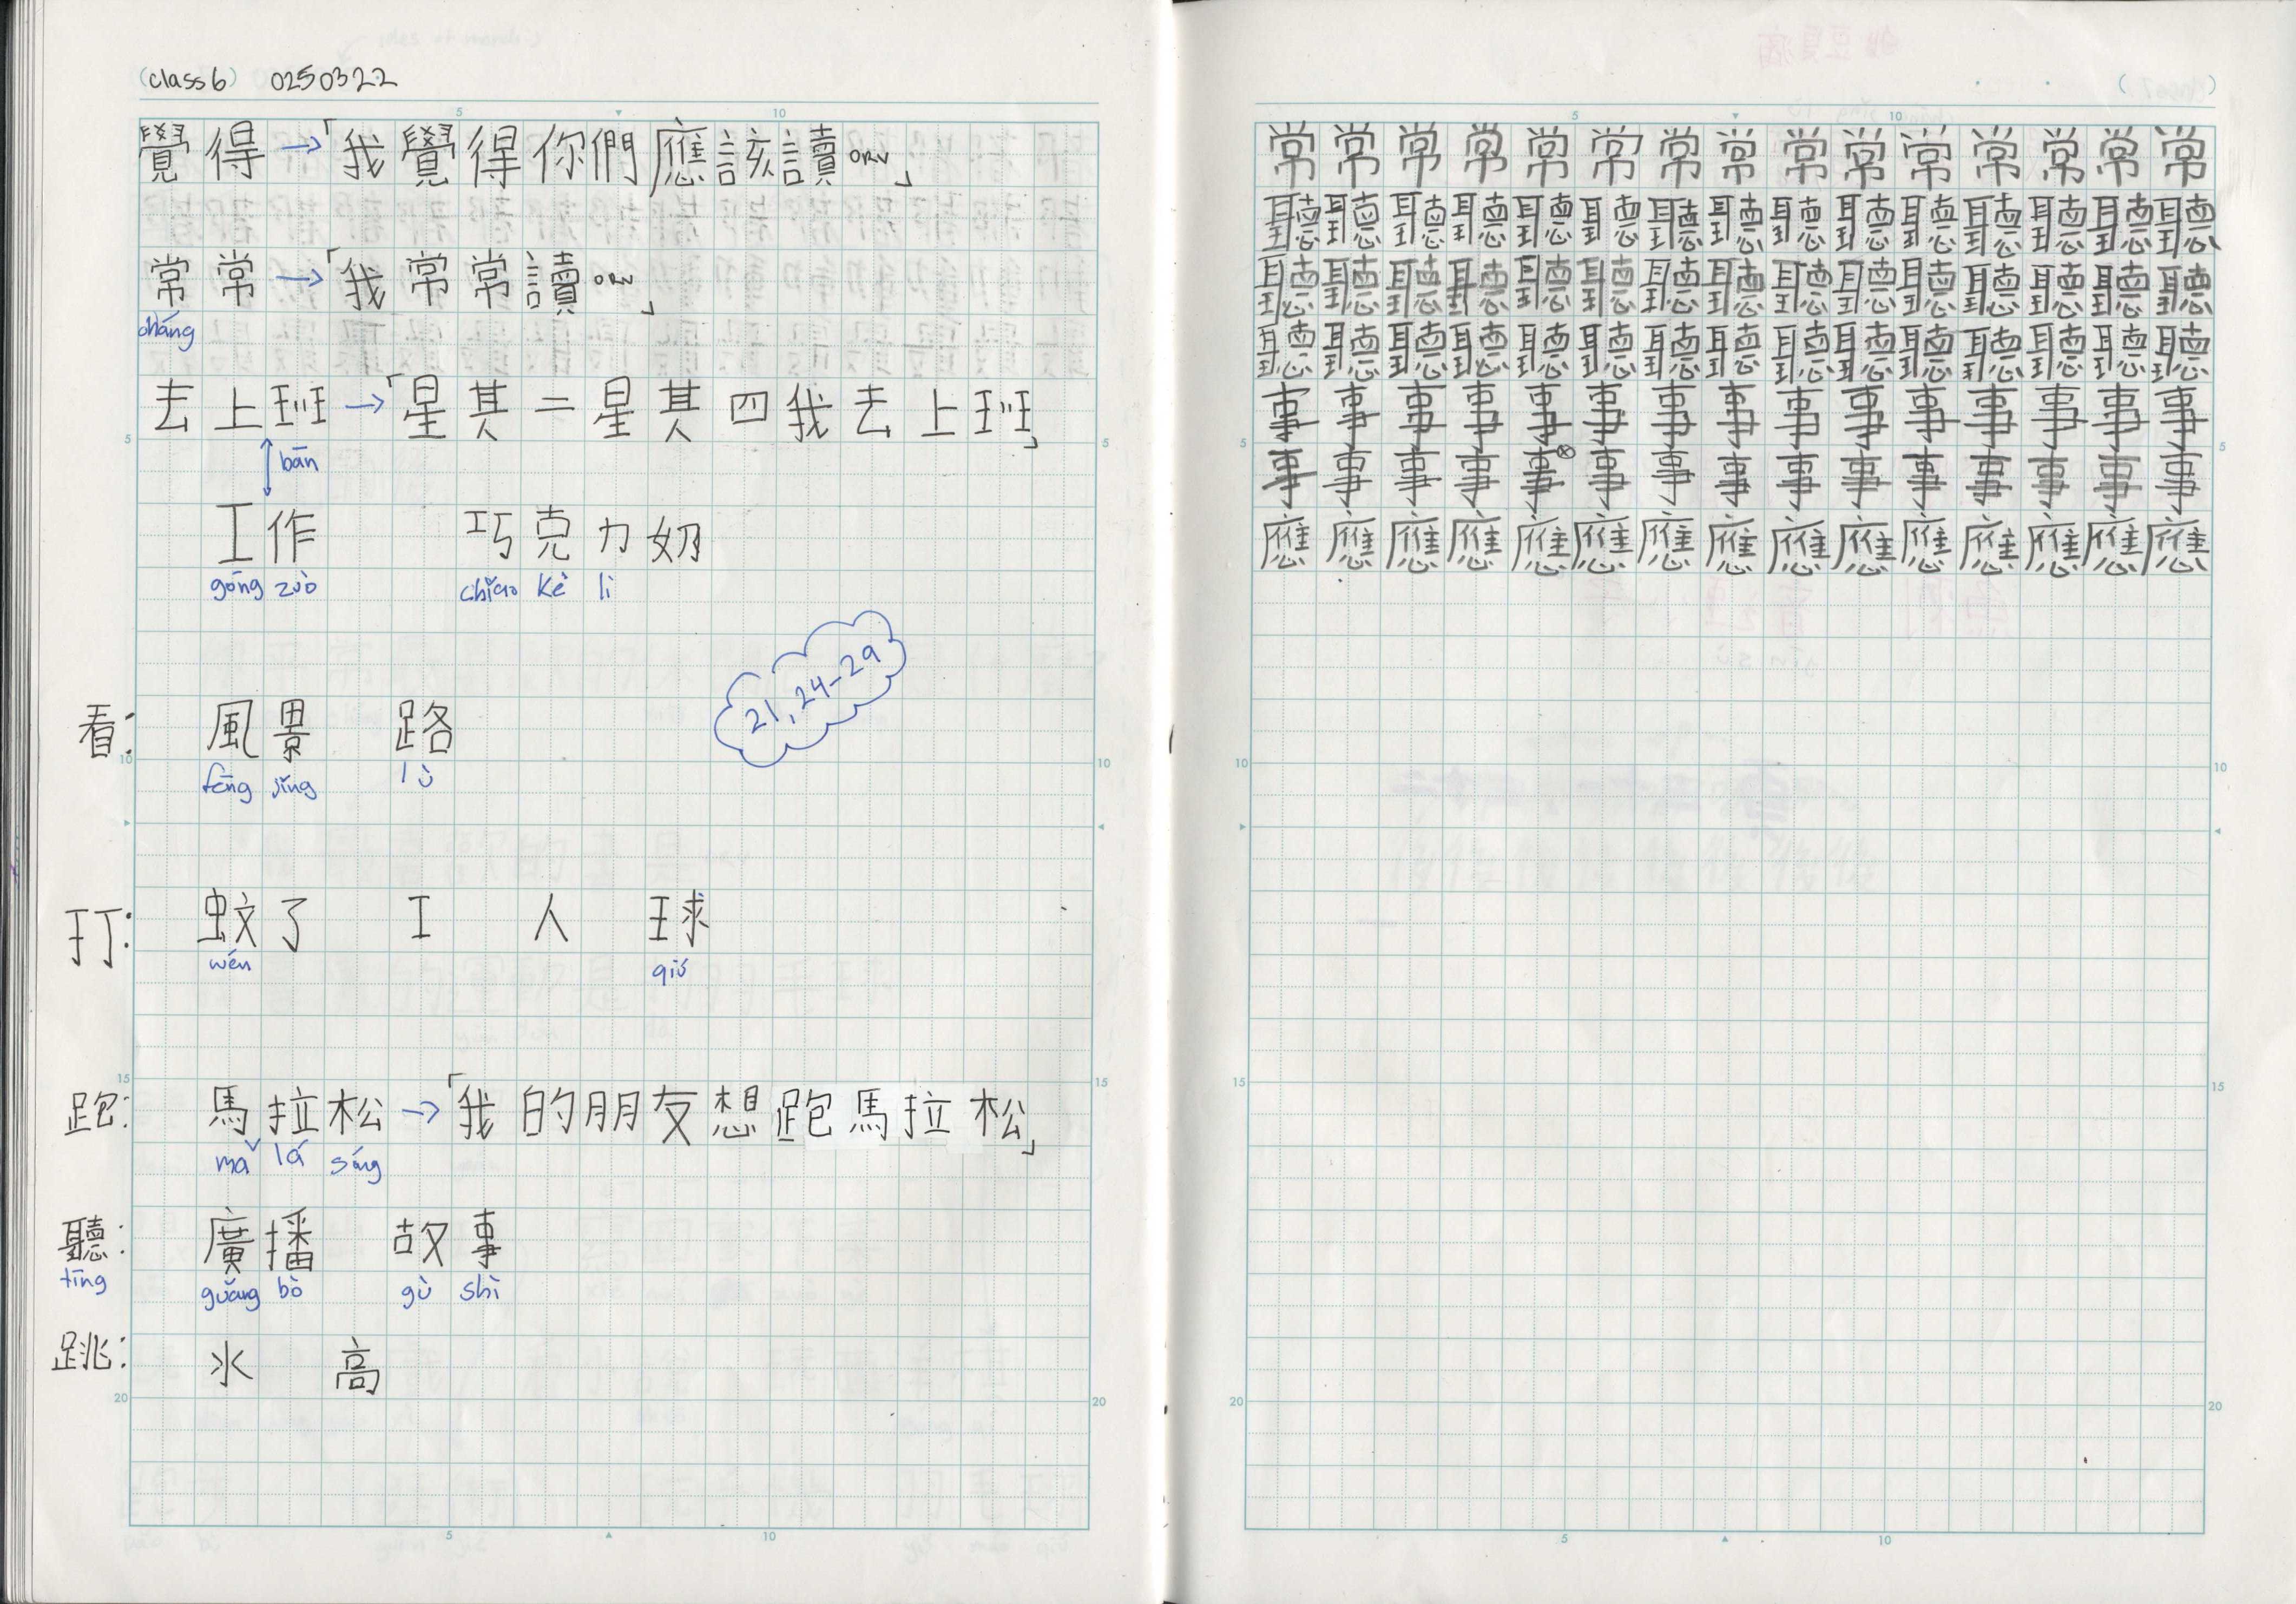 (class 6) 0250322
覺得→「我覺得你們應該讀ORV」
常常→「我常常讀ORV」
cháng
去上班→「星其二星其四我去上班」
bān
工作 巧克力奶
gōng zuò chǐao kè lì
21, 24-29
看: 風景 路
fēng jǐng lù
打: 蚊了 工 人 球
wén qiú
跑: 馬拉松→「我的朋友想跑馬拉松」
mǎ lá sóng
聽: 廣播 故事
tīng guǎng bò gù shì
跳: 水 高
常常常常常常常常常常常常常常常
聽聽聽聽聽聽聽聽聽聽聽聽聽聽聽
聽聽聽聽聽聽聽聽聽聽聽聽聽聽聽
聽聽聽聽聽聽聽聽聽聽聽聽聽聽聽
事事事事事事事事事事事事事事事
事事事事事事事事事事事事事事事
應應應應應應應應應應應應應應應